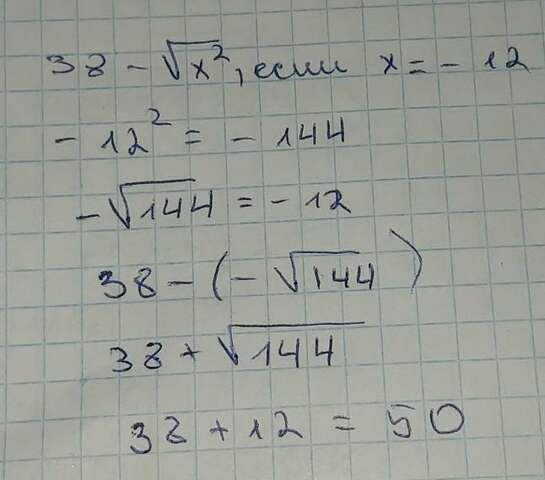 38 - √x², если x = - 12
- 12² = - 144
-√144 = - 12
38 - (- √144)
38 + √144
38 + 12 = 50